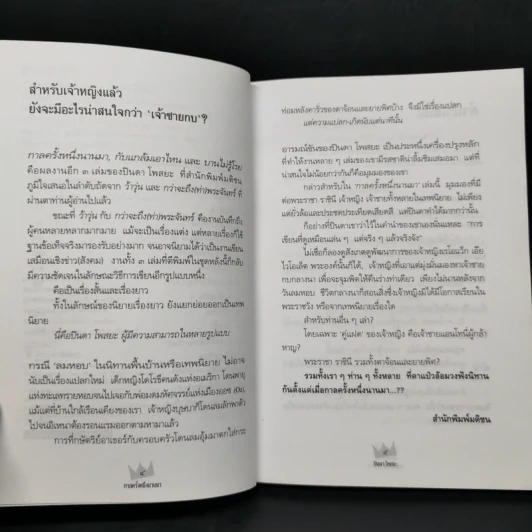 สำหรับเจ้าหญิงแล้ว
ยังจะมีอะไรน่าสนใจกว่า 'เจ้าชายกบ'?
กาลครั้งหนึ่งนานมา, กับแกล้มเอาไหน และ บานไม่รู้โรย
คือผลงานอีก ๓ เล่มของปินดา โพสยะ ที่สำนักพิมพ์มติชน
ภูมิใจเสนอในลำดับถัดจาก ว้าวุ่น และ กว่าจะถึงท่าพระจันทร์ ที่
ผ่านตาท่านผู้อ่านไปแล้ว
ขณะที่ ว้าวุ่น กับ กว่าจะถึงท่าพระจันทร์ คืองานบันทึกถึง
ผู้คนหลายหลากมากมาย แม้จะเป็นเรื่องแต่ง แต่หลายเรื่องก็ใช้
ฐานข้อเท็จจริงมารองรับอย่างมาก จนอาจนิยามได้ว่าเป็นงานเขียน
เสมือนเรื่องข่าว(สังคม) งานทั้ง ๓ เล่มที่ตีพิมพ์ในชุดหลังนี้กลับ
มีความชัดเจนในลักษณะวิธีการเขียนอีกรูปแบบหนึ่ง
คือเป็นเรื่องสั้นและเรื่องยาว
ทั้งในลักษณะของนิยายเรื่องยาว ยังแยกย่อยออกเป็นเทพ
นิยาย
นี่คือปินดา โพสยะ ผู้มีความสามารถในหลายรูปแบบ
กรณี 'ลมหอบ' ในนิทานพื้นบ้านหรือเทพนิยาย ไม่อาจ
นับเป็นเรื่องแปลกใหม่ เด็กหญิงโดโรธีคนดังแห่งอเมริกา โดนพายุ
แห่งทะเลทรายหอบจนไปเจอกับพ่อมดมหัศจรรย์แห่งเมืองออซ
แม้แต่ที่บ้านใกล้เรือนเคียงของเรา เจ้าหญิงบุษบาก็โดนลมลักพาตัว
ไปจนอิเหนาต้องรอนแรมออกตามหามาแล้ว
การที่กษัตริย์อาเธอร์กับครอบครัวโดนลมอุ้มมาตกใส่กระ
๔
กาลครั้งหนึ่งนานมา
ท่อมหลังคารั่วของตาจ้อนและยายพิศบ้าง จึงมิใช่เรื่องแปลก
แต่ความแปลก-เกิดนับแต่นาทีนั้น
อารมณ์ขันของปินดา โพสยะ เป็นประหนึ่งเครื่องปรุงหลัก
ที่ทำให้งานหลาย ๆ เล่มของเขามีรสชาติน่าลิ้มชิมเสมอมา แต่ที่
น่าสนใจไม่น้อยกว่ากันก็คือมุมมองของเขา
กล่าวสำหรับใน 'กาลครั้งหนึ่งนานมา' เล่มนี้ มุมมองที่มี
ต่อพระราชา ราชินี เจ้าหญิง เจ้าชายทั้งหลายในเทพนิยาย ไม่เพียง
แต่ยั่วล้อและประชดประเทียดเสียดสี แต่ปินดาทำได้มากกว่านั้น
อย่างที่ปินดาเขาว่าไว้ในคำนำของเขาเองนั่นแหละ "การ
เขียนที่ดูเหมือนเล่น ๆ แต่จริง ๆ แล้วจริงจัง"
ไม่เชื่อก็ลองดูสังเกตดูพัฒนาการของเจ้าหญิงเรโอนวีก เอีย
ไวโอเล็ต พระองค์นั้นก็ได้, เจ้าหญิงที่เอาแต่มุ่งมั่นมองหาเจ้าชาย
กบกลางนา เพื่อจะจุมพิตให้คืนร่างท่าเดียว เพียงไม่นานหลังจาก
วันลมหอบ ชีวิตกลางนาก็สอนสิ่งที่เจ้าหญิงมิได้มีโอกาสเรียนใน
พระราชวัง หรือจากเทพนิยายเรื่องใด
สำหรับท่านอื่น ๆ เล่า?
โดยเฉพาะ 'คู่แฝด' ของเจ้าหญิง คือเจ้าชายแอนโทนี่ผู้กล้า
หาญ?
พระราชา ราชินี รวมทั้งตาจ้อนและยายพิศ?
รวมทั้งเรา ๆ ท่าน ๆ ทั้งหลาย ที่ลาแปว้ล้อมวงฟังนิทาน
กันตั้งแต่เมื่อกาลครั้งหนึ่งนานมา...??
สำนักพิมพ์มติชน
๕
ปินดา โพสยะ